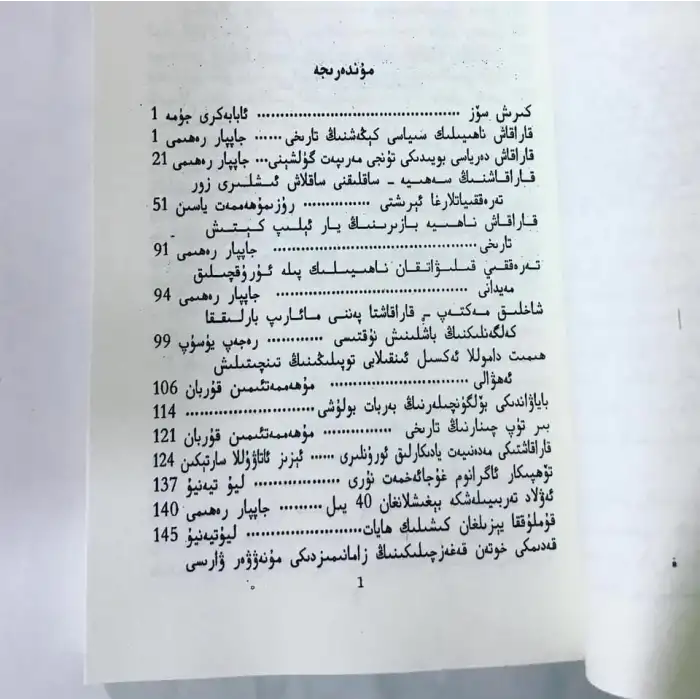 مۇندەرىجە
كىرىش سۆز ............................................ ئابابەكرى جۈمە 1
قاراقاش ناھىيىلىك سىياسى كېڭەشنىڭ تارىخى ...... جاپپار رەھىمى 1
قاراقاش دەرياسى بويىدىكى تۇنجى مەرىپەت گۈلشېنى... جاپپار رەھىمى 21
قاراقاشنىڭ سەھىيە - ساقلىقنى ساقلاش ئىشلىرى زور
تەرەققىياتلارغا ئېرىشتى ............... روزىمۇھەممەت ياسىن 51
قاراقاش ناھىيە بازىرىنىڭ يار ئېلىپ كېتىش
تارىخى .................................. جاپپار رەھىمى 91
تەرەققىي قىلىۋاتقان ناھىيىلىك پىلە ئۇرۇقچىلىق
مەيدانى .................................. جاپپار رەھىمى 94
شاخلىق مەكتەپ - قاراقاشتا پەننى مائارىپ بارلىققا
كەلگەنلىكىنىڭ باشلىنىش نۇقتىسى ............ رەجەپ يۈسۈپ 99
ھىمىت داموللا ئەكسىل ئىنقىلابى توپىلىڭىنىڭ تىنچىتىلىش
ئەھۋالى .............................. مۇھەممەتئىمىن قۇربان 106
باياۋاندىكى بۆلگۈنچىلەرنىڭ بەربات بولۇشى ............................ 114
بىر تۈپ چىنارنىڭ تارىخى ............... مۇھەممەتئىمىن قۇربان 121
قاراقاشتىكى مەدەنىيەت يادىكارلىق ئورۇنلىرى ...... ئېزىز ئاتاۋۇللا سارتېكىن 124
تۆھپىكار ئاگرانوم غۇجائەخمەت نۇرى .................. ليۇ تيەنيۇ 137
ئەۋلاد تەربىيىلەشكە بېغىشلانغان 40 يىل ......... جاپپار رەھىمى 140
قۇملۇققا يېزىلغان كىشىلىك ھايات ......................... ليۇتيەنيۇ 145
قەدىمكى خوتەن قەغەزچىلىكىنىڭ زامانىمىزدىكى مۇنەۋۋەر ۋارىسى
1